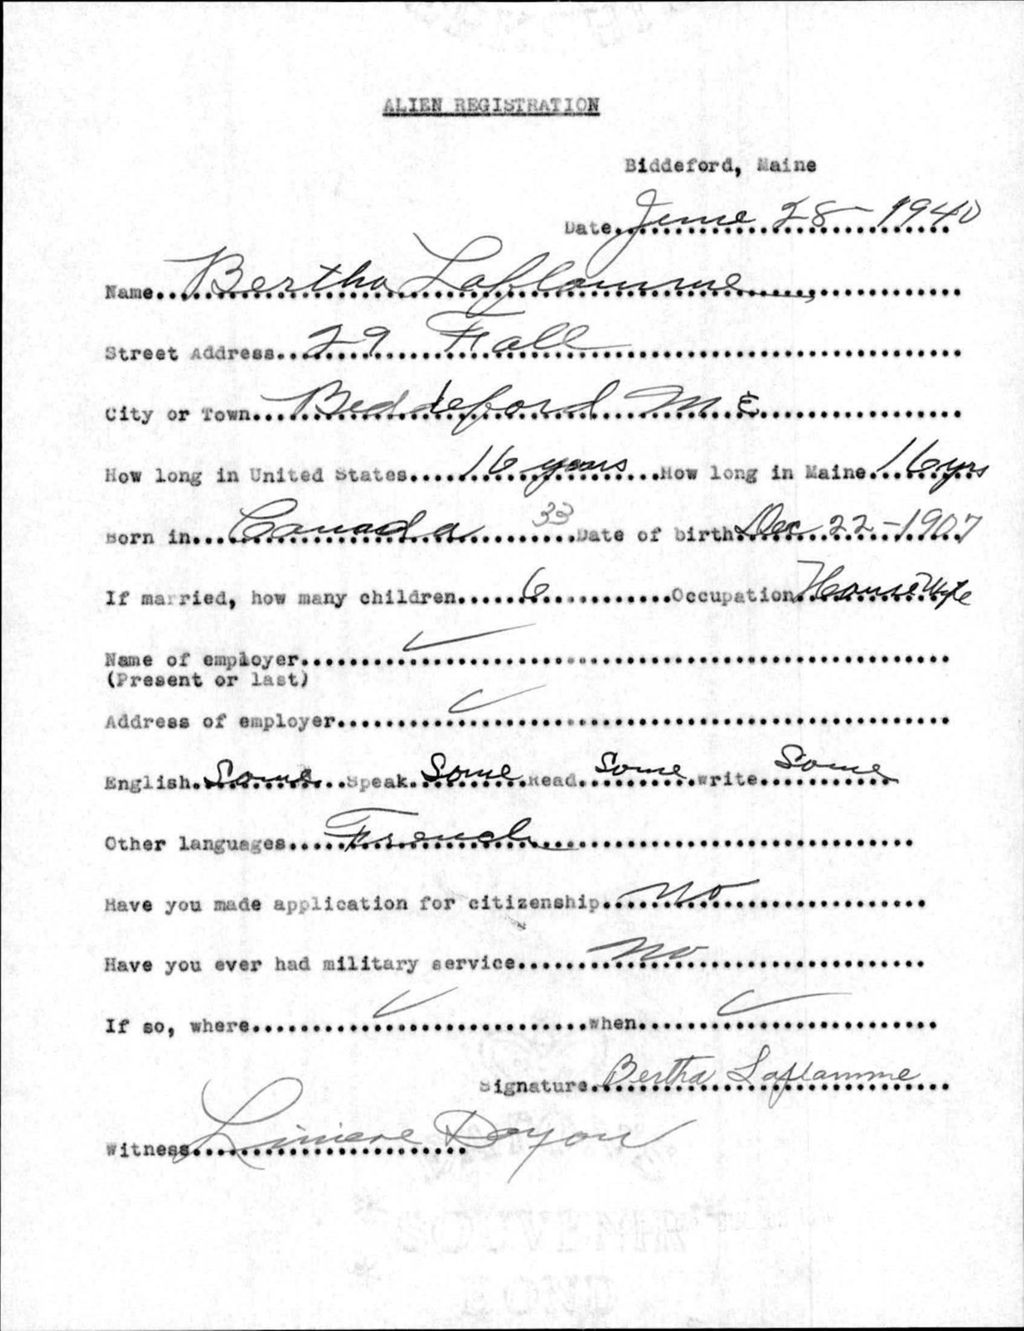 ALIEN REGISTRATION
Biddeford, Maine
Date June 28-1940
Name Bertha Laflamme,
Street Address 29 Fall
City or Town Biddeford ME
How long in United States 16 years How long in Maine 16 yrs
Born in Canada 33 Date of birth Dec 22-1907
If married, how many children 6 Occupation House Wife
Name of employer
(Present or last)
Address of employer
English Some Speak Some Read Some Write Some
Other languages French
Have you made application for citizenship no
Have you ever had military service no
If so, where when
Signature Bertha Laflamme
Witness Liniere Doyon